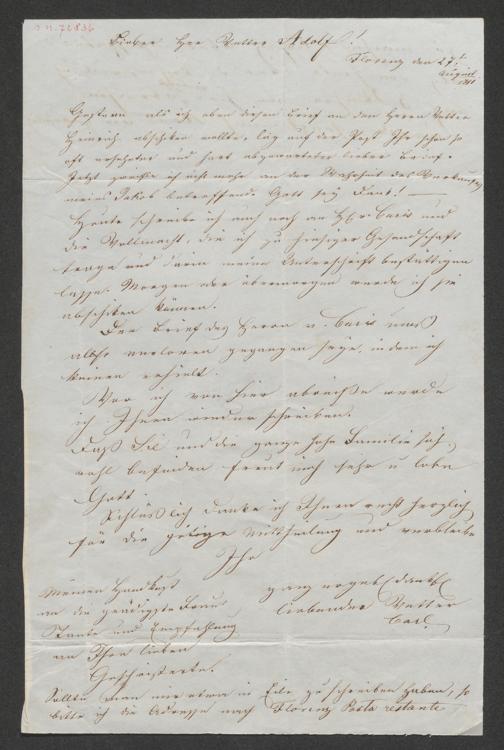 Lieber Herr Vetter Adolf!
Florenz den 27.t
August
Gestern als ich eben diesen Brief an den Herrn Vetter
Heinrich abschiken wollte, lag auf der Post Ihr schon so
oft ersehnter und hart abgewarteter lieber Brief.
Jetzt zweifle ich nicht mehr an der Wahrheit des
meines Jakob betreffende Gott sey Dank! —
Heute schreibe ich auch noch an Hr. und
die Vollmacht, die ich zu hiesiger Gesandschaft
trage und darin meine Unterschrift bestättigen
lasse. Morgen oder übermorgen werde ich sie
abschiken können.
Der Brief des Herrn v. muß
also verloren gegangen seyn, indem ich
keinen erhielt.
Vor ich von hier abreise werde
ich Ihnen wieder schreiben.
Daß Sie und die ganze hohe Familie sich
wohl befinden freut mich sehr u. lobe
Gott.
Schlüßlich danke ich Ihnen recht herzlich
für die gütige Mittheilung und verbleibe
Ihr
ganz ergebenst dankb.
liebender Vetter
Carl.
Meinen Handkuß
an die gnädigste Frau
Tante und Empfehlung
an Ihre lieben
Geschwisterte.
Sollte man mir etwa in Eile zu schreiben haben, so
bitte ich die Adresse nach Florenz Posta restante